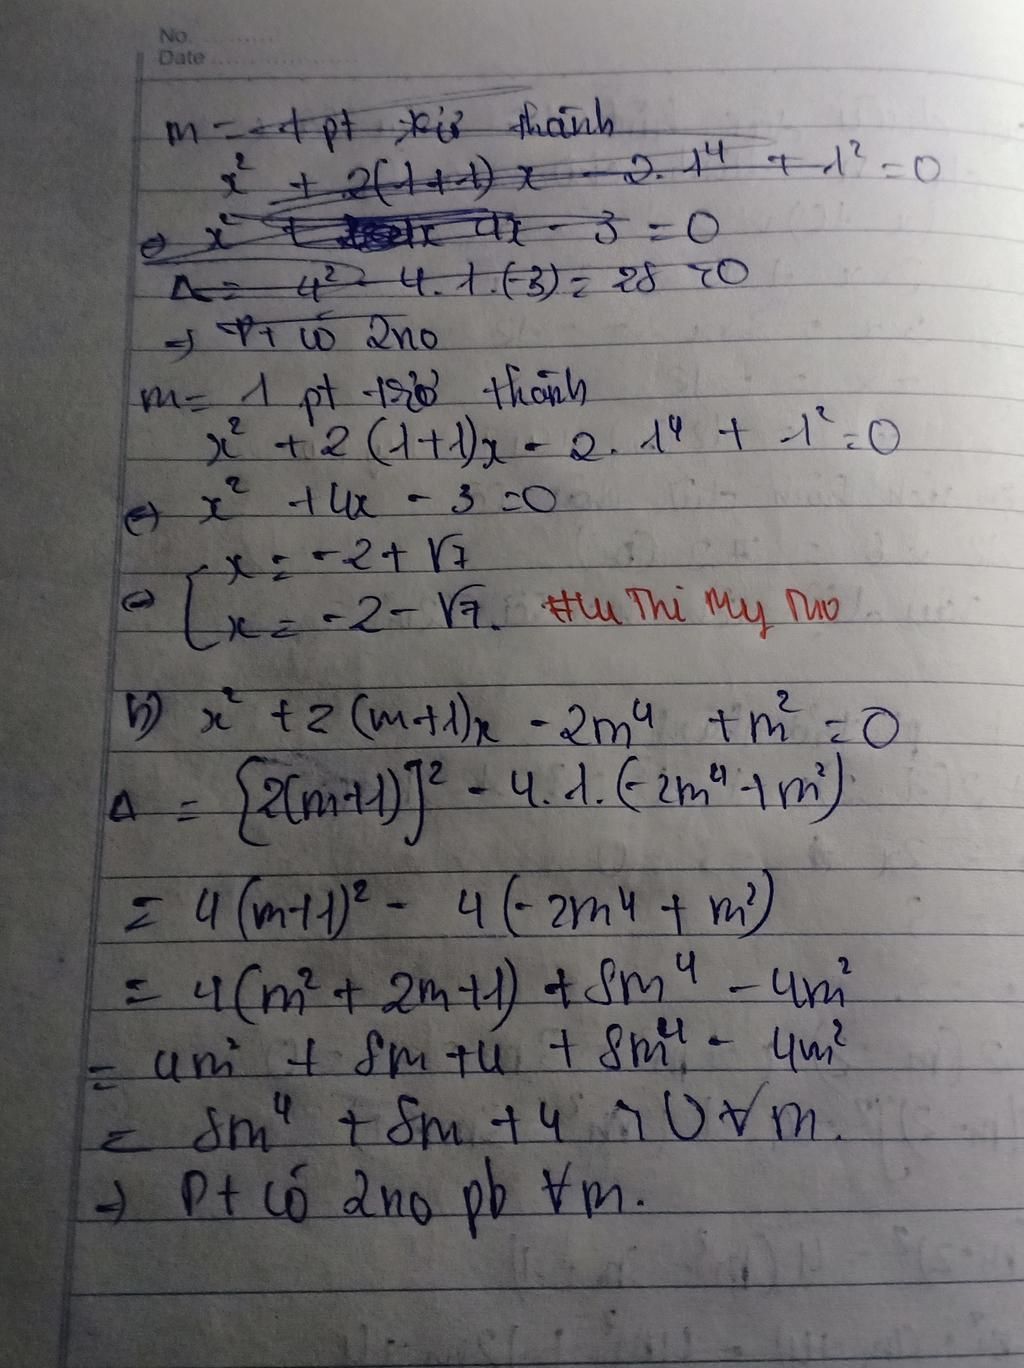 No.
Date
m = 1 pt trở thành
x² + 2(1+1)x - 2.1⁴ + 1² = 0
⇔ x² + 4x - 3 = 0
Δ = 4² - 4.1.(-3) = 28 > 0
⇒ Pt có 2no
m = 1 pt trở thành
x² + 2(1+1)x - 2.1⁴ + 1² = 0
⇔ x² + 4x - 3 = 0
⇔ [ x = -2 + √7
x = -2 - √7. Thi My
b) x² + 2(m+1)x - 2m⁴ + m² = 0
Δ = [2(m+1)]² - 4.1.(-2m⁴ + m²)
= 4(m+1)² - 4(-2m⁴ + m²)
= 4(m² + 2m + 1) + 8m⁴ - 4m²
= 4m² + 8m + 4 + 8m⁴ - 4m²
= 8m⁴ + 8m + 4 > 0 ∀m.
⇒ Pt có 2no pb ∀m.